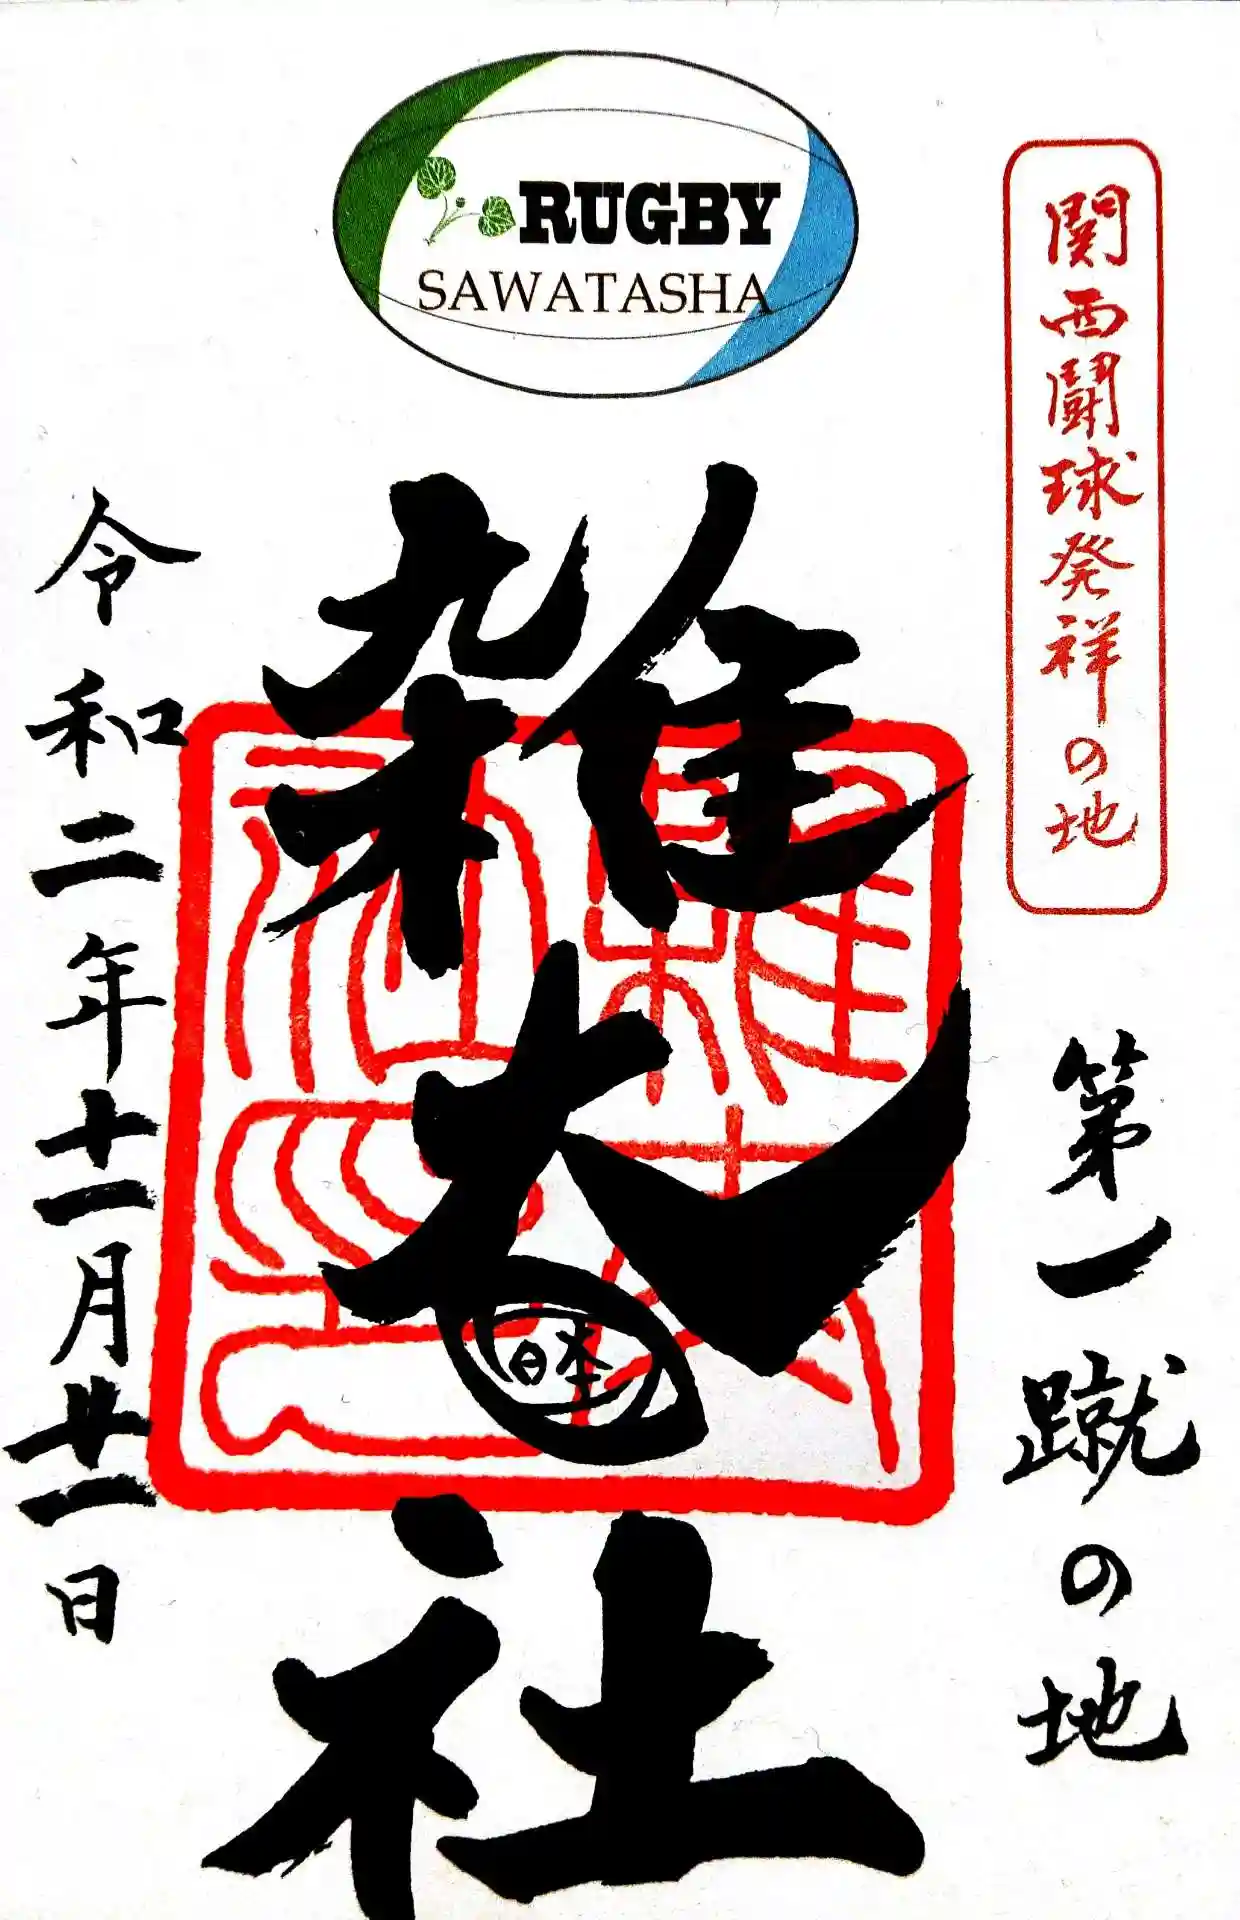 RUGBY
SAWATASHA
関西闘球発祥の地
第一蹴の地
雑太社
令和二年十一月廿一日